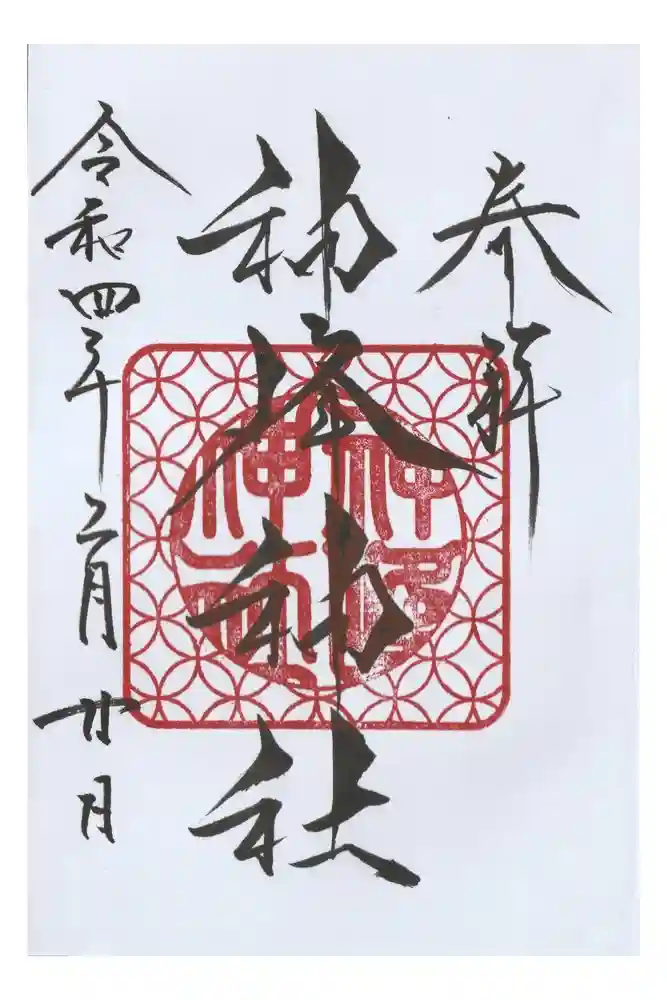 奉拝
神峰神社
令和四年二月廿日